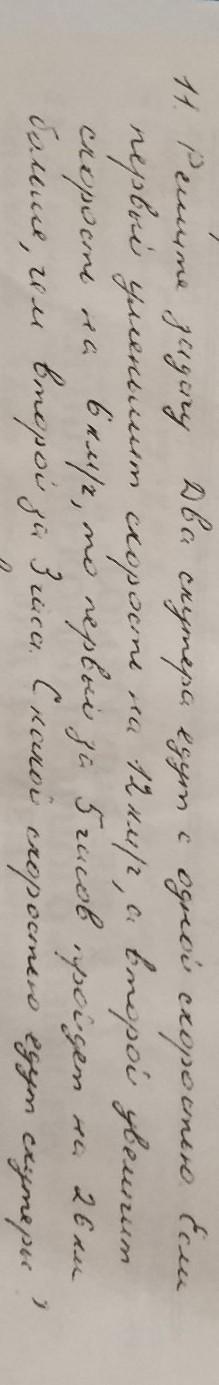 11. Решите задачу Два скутера едут с одной скоростью. Если
первый уменьшит скорость на 12 км/г, а второй увеличит
скорость на 6 км/г, то первый за 5 часов пройдет на 26 км
больше, чем второй за 3 часа. С какой скоростью едут скутеры?